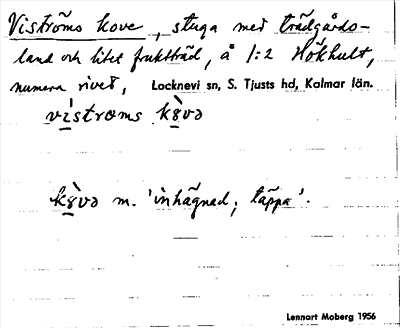 Viströms kove, stuga med trädgårds-
land och litet fruktträd, å 1:2 Hökhult,
numera rivet, Locknevi sn, S. Tjusts hd, Kalmar län.
vi̱stroms kò̱və
kò̱və m. 'inhägnad; täppa'.
Lennart Moberg 1956